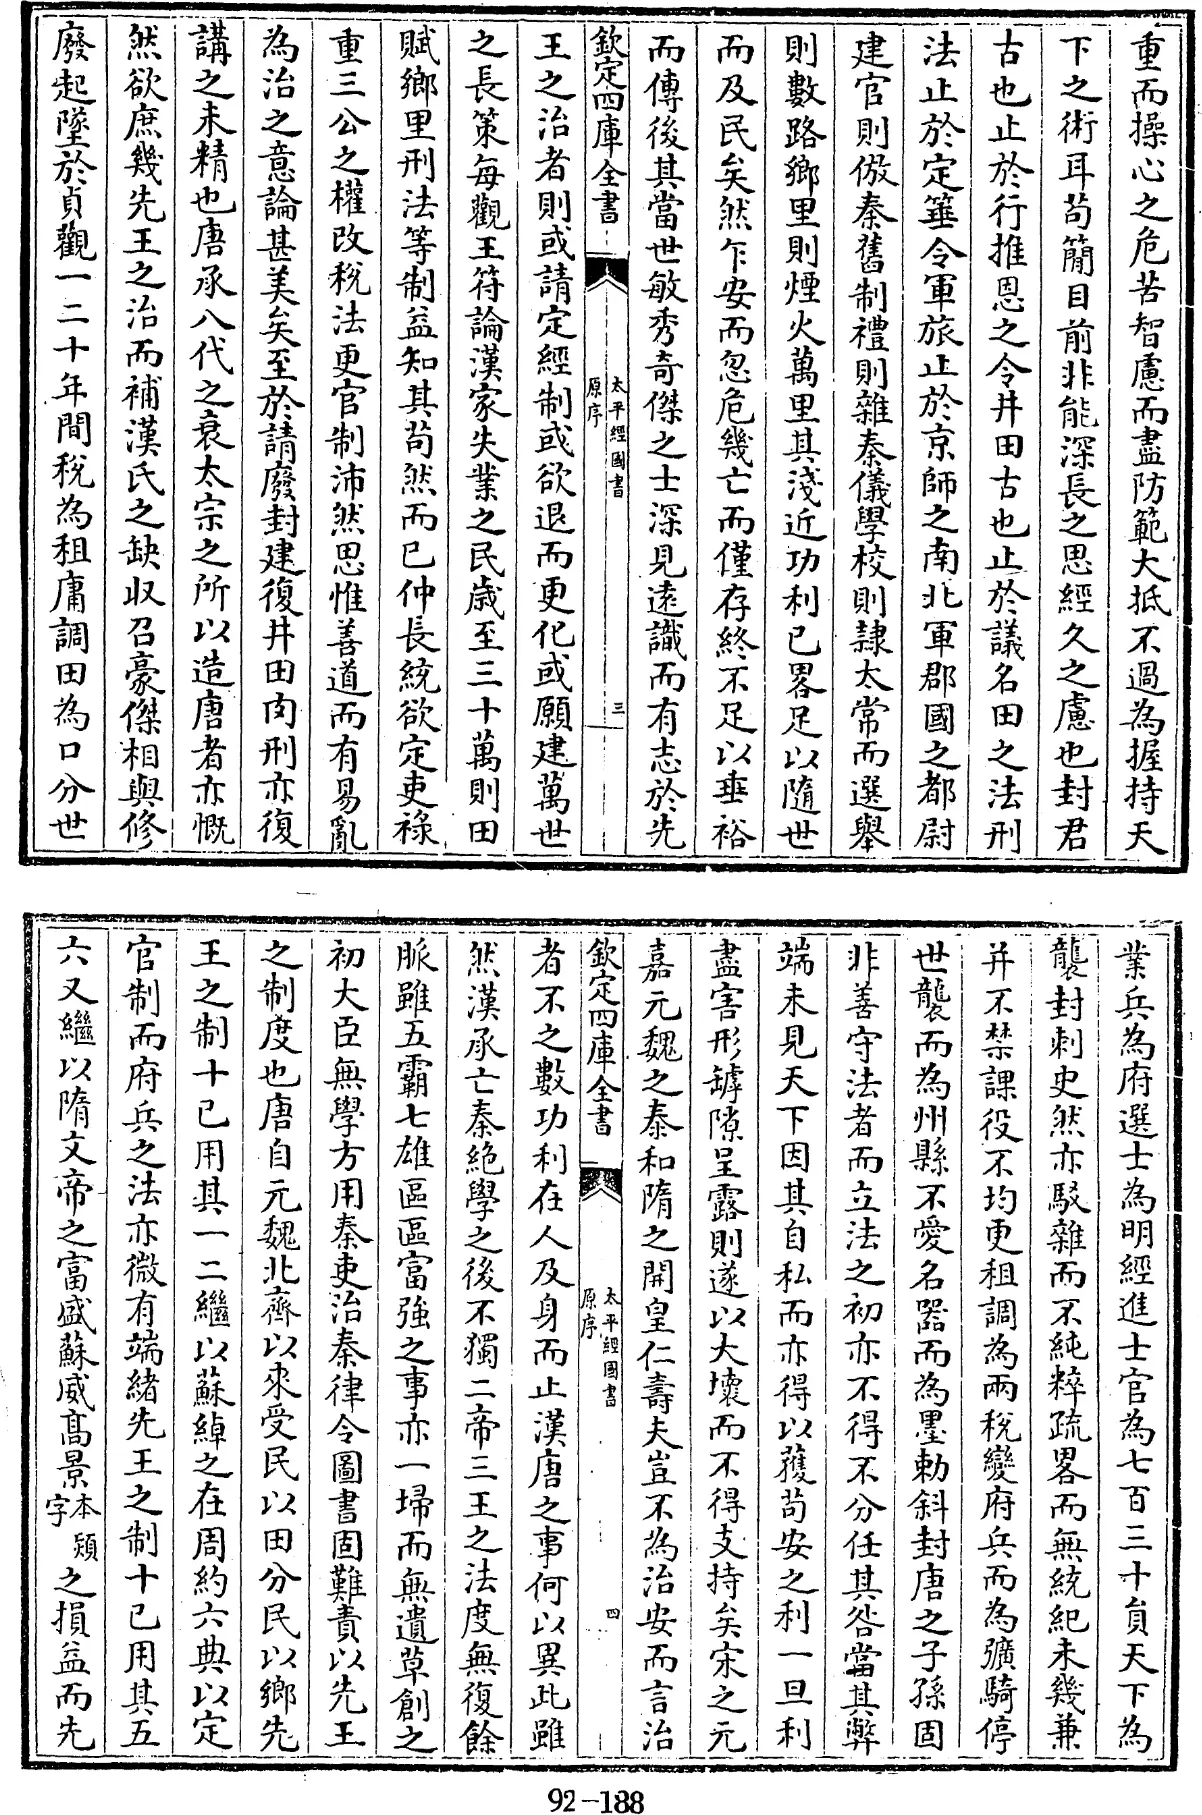 重而操心之危苦智慮而盡防範大抵不過為握持天
下之術耳苟簡目前非能深長之思經久之慮也封君
古也止於行推恩之令井田古也止於議名田之法刑
法止於定箠令軍旅止於京師之南北軍郡國之都尉
建官則倣秦舊制禮則雜秦儀學校則隸太常而選舉
則數路鄉里則煙火萬里其淺近功利已畧足以隨世
而及民矣然乍安而忽危幾亡而僅存終不足以垂裕
而傳後其當世敏秀奇傑之士深見遠識而有志於先
欽定四庫全書
太平經國書
原序
三
王之治者則或請定經制或欲退而更化或願建萬世
之長策每觀王符論漢家失業之民歲至三十萬則田
賦鄉里刑法等制益知其苟然而已仲長統欲定吏祿
重三公之權改稅法更官制沛然思惟善道而有易亂
為治之意論甚美矣至於請廢封建復井田肉刑亦復
講之未精也唐承八代之衰太宗之所以造唐者亦慨
然欲庶幾先王之治而補漢氏之缺収召豪傑相與修
廢起墜於貞觀一二十年間稅為租庸調田為口分世
業兵為府選士為明經進士官為七百三十員天下為
襲封刺史然亦駁雜而不純粹疏畧而無統紀未幾兼
并不禁課役不均更租調為兩稅變府兵而為彍騎停
世襲而為州縣不愛名器而為墨勅斜封唐之子孫固
非善守法者而立法之初亦不得不分任其咎當其弊
端未見天下因其自私而亦得以獲苟安之利一旦利
盡害形罅隙呈露則遂以大壞而不得支持矣宋之元
嘉元魏之泰和隋之開皇仁壽夫豈不為治安而言治
欽定四庫全書
太平經國書
原序
四
者不之數功利在人及身而止漢唐之事何以異此雖
然漢承亡秦絶學之後不獨二帝三王之法度無復餘
脈雖五霸七雄區區富強之事亦一埽而無遺草創之
初大臣無學方用秦吏治秦律令圖書固難責以先王
之制度也唐自元魏北齊以來受民以田分民以鄉先
王之制十已用其一二繼以蘇綽之在周約六典以定
官制而府兵之法亦微有端緒先王之制十已用其五
六又繼以隋文帝之富盛蘇威髙景本字熲之損益而先
92-188